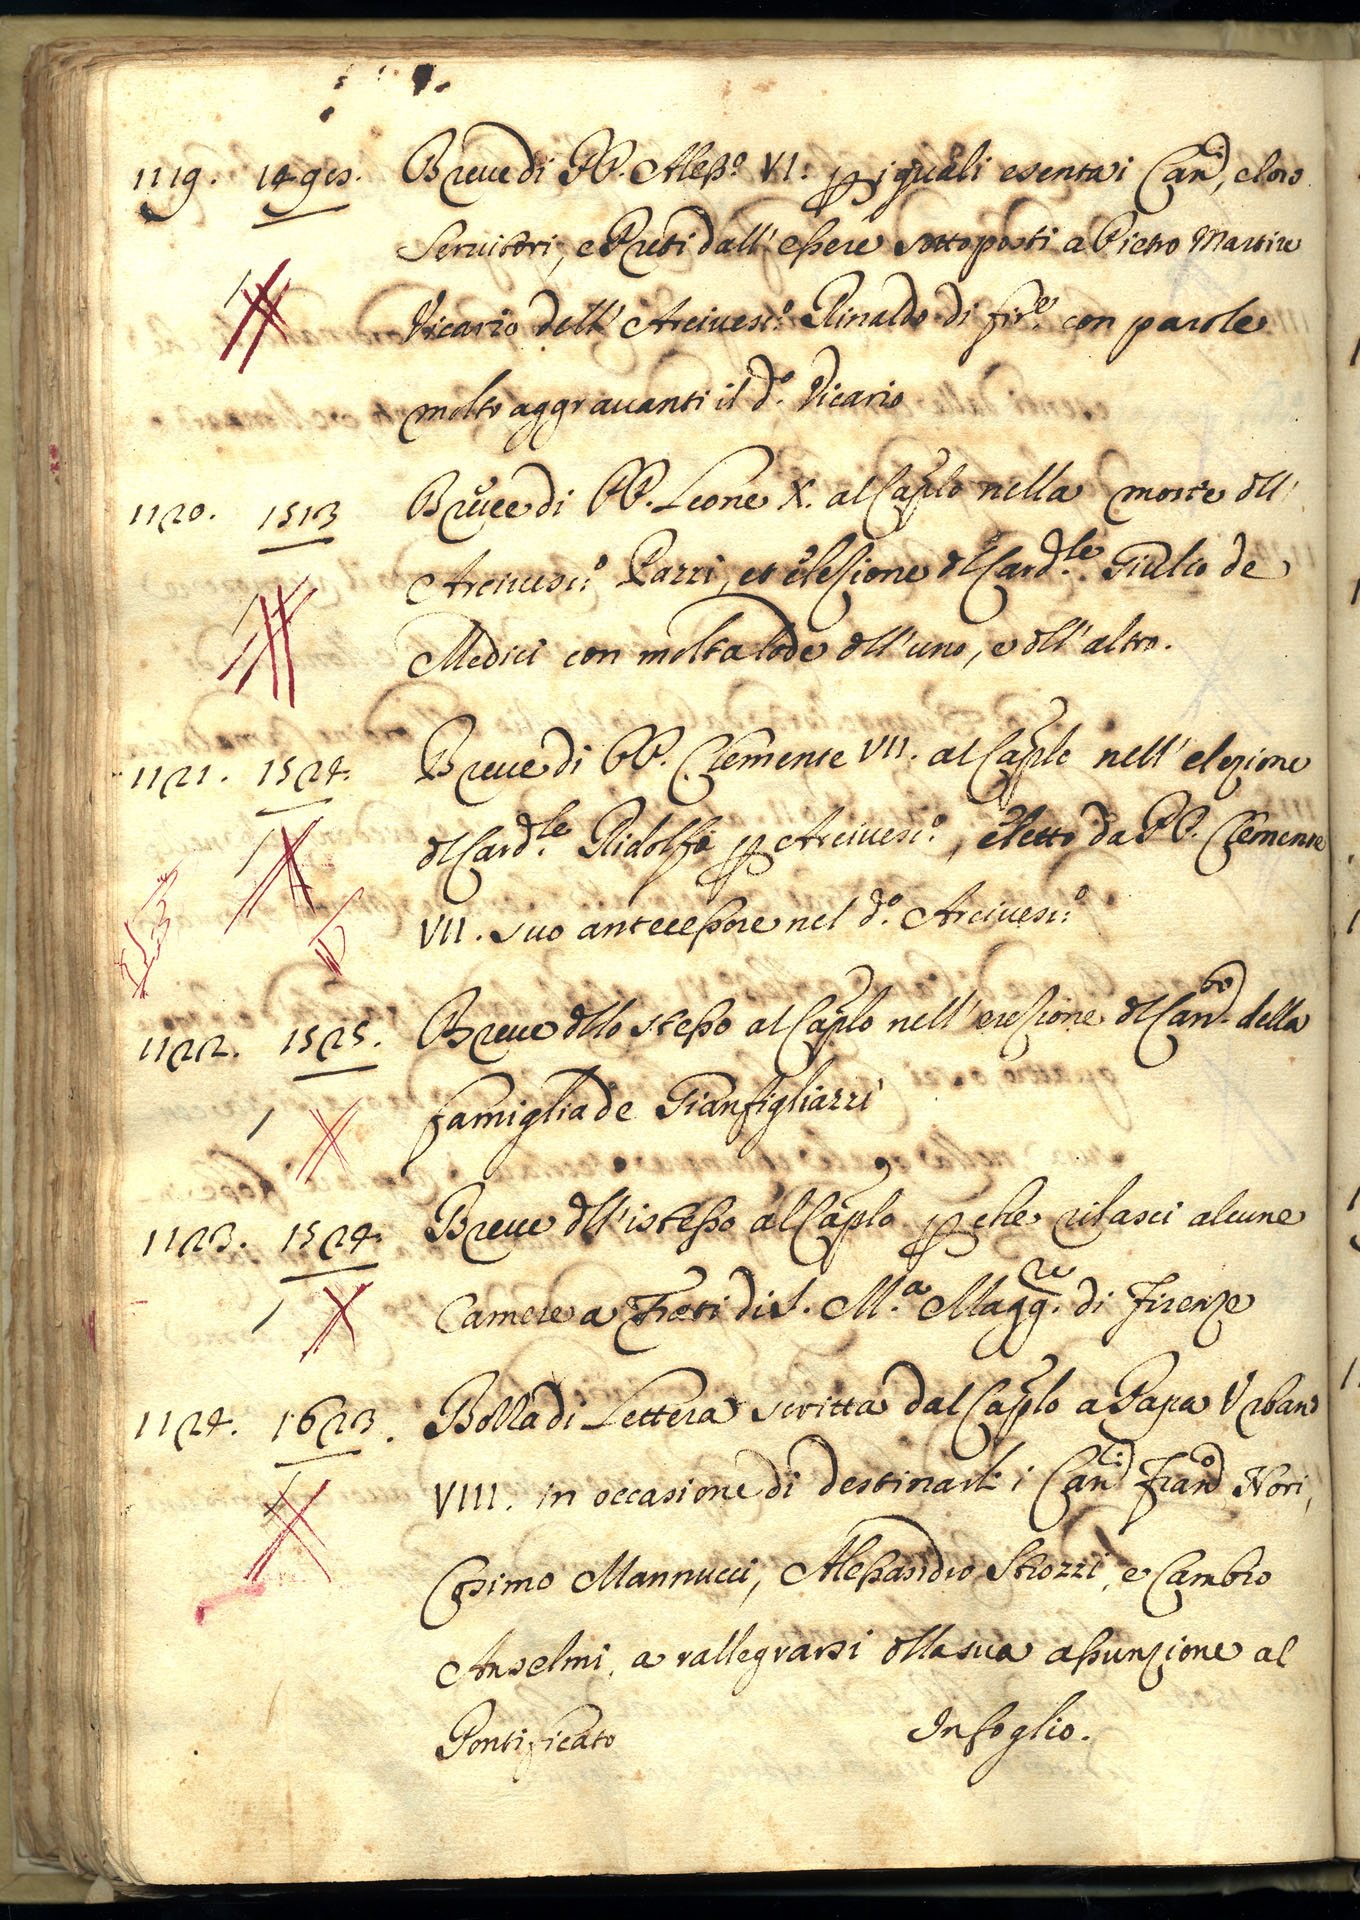 1119. 1495. Breue di PP. Aless.o VI. p i quali esenta i Can.ci, e loro
Seruitori, e Preti dall'essere sottoposti a Pietro Martire
Vicario dell'Arciuesc.o Rinaldo di fir.e con parole
molto aggrauanti il d.o Vicario
1120. 1513 Breue di PP. Leone X. al Caplo nella morte dll'
Arciuesc.o Pazzi, et elezione dl Card.le Giulio de
Medici con molta lode dll'uno, e dll'altro.
1121. 1524. Breue di PP. Clemente VII. al Caplo nell'elezione
dl Card.le Ridolfi p Arciuesc.o, eletto da PP. Clemente
VII. suo antecessore nel d.o Arciuesc.o
1122. 1525. Breue dllo stesso al Caplo nell'erezione dl Can.to della
famiglia de Gianfigliazzi
1123. 1524. Breue dll'istesso al Caplo p che rilasci alcune
Camere a Frati di S. M.a Magg.re di Firenze
1124. 1623. Bozza di Lettera scritta dal Caplo a Papa Vrbano
VIII. in occasione di destinarli i Can.ci Fran.o Nori,
Cosimo Mannucci, Alessandro Strozzi, e Cambio
Anselmi, a rallegrarsi dlla sua assunzione al
Pontificato In foglio.